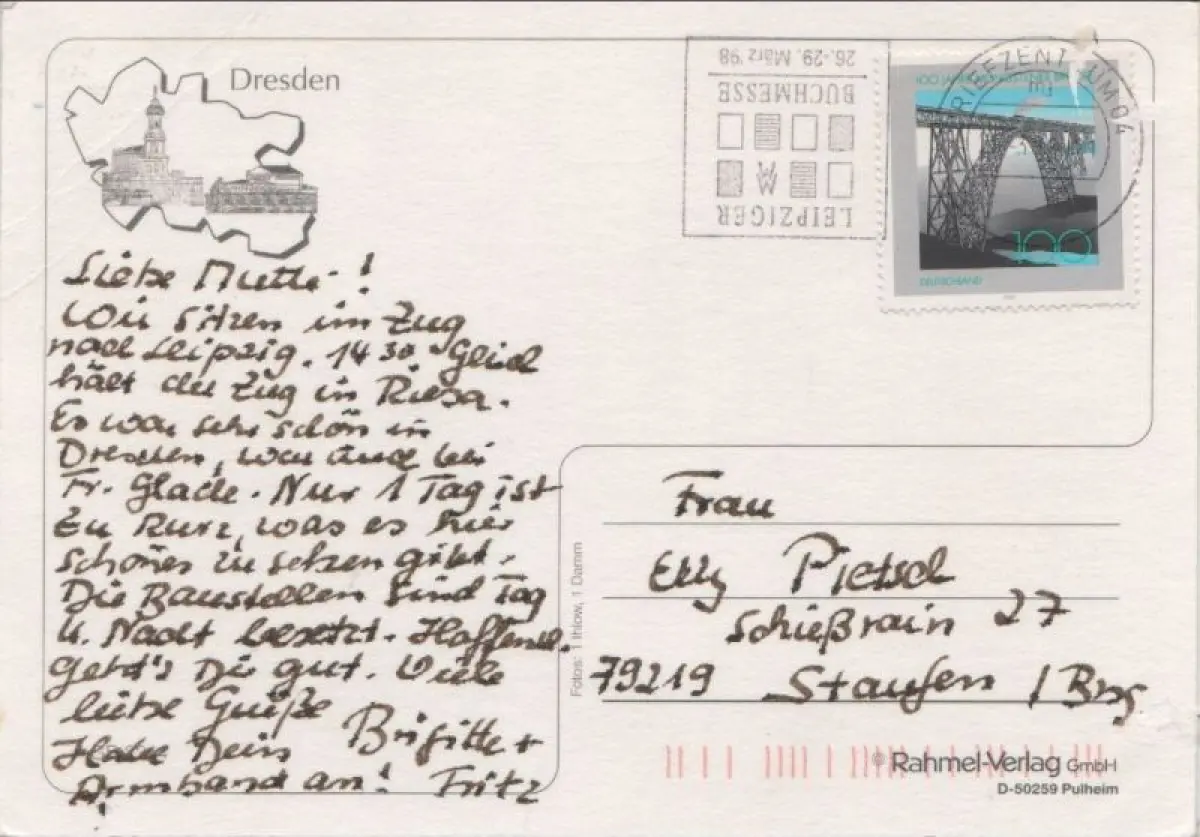 Dresden
Liebe Mutti!
Wir sitzen im Zug
nach Leipzig. 14 30 Gleich
hält der Zug in Riesa.
Es war sehr schön in
Dresden, war auch bei
Fr. Glade. Nur 1 Tag ist
zu kurz, was es hier
schönes zu sehen gibt.
Die Baustellen sind Tag
u. Nacht besetzt. Hoffentl.
geht's Dir gut. Viele
liebe Grüße
Brigitte +
Fritz
Habe Dein
Armband an!
26.-29. März '98
BUCHMESSE
LEIPZIGER
BRIEFZENTRUM 04
100
DEUTSCHLAND
Frau
Elly Pietsch
Schießrain 27
79219 Staufen / Brsg
Fotos: 1 Ihlow, 1 Damm
© Rahmel-Verlag GmbH
D-50259 Pulheim